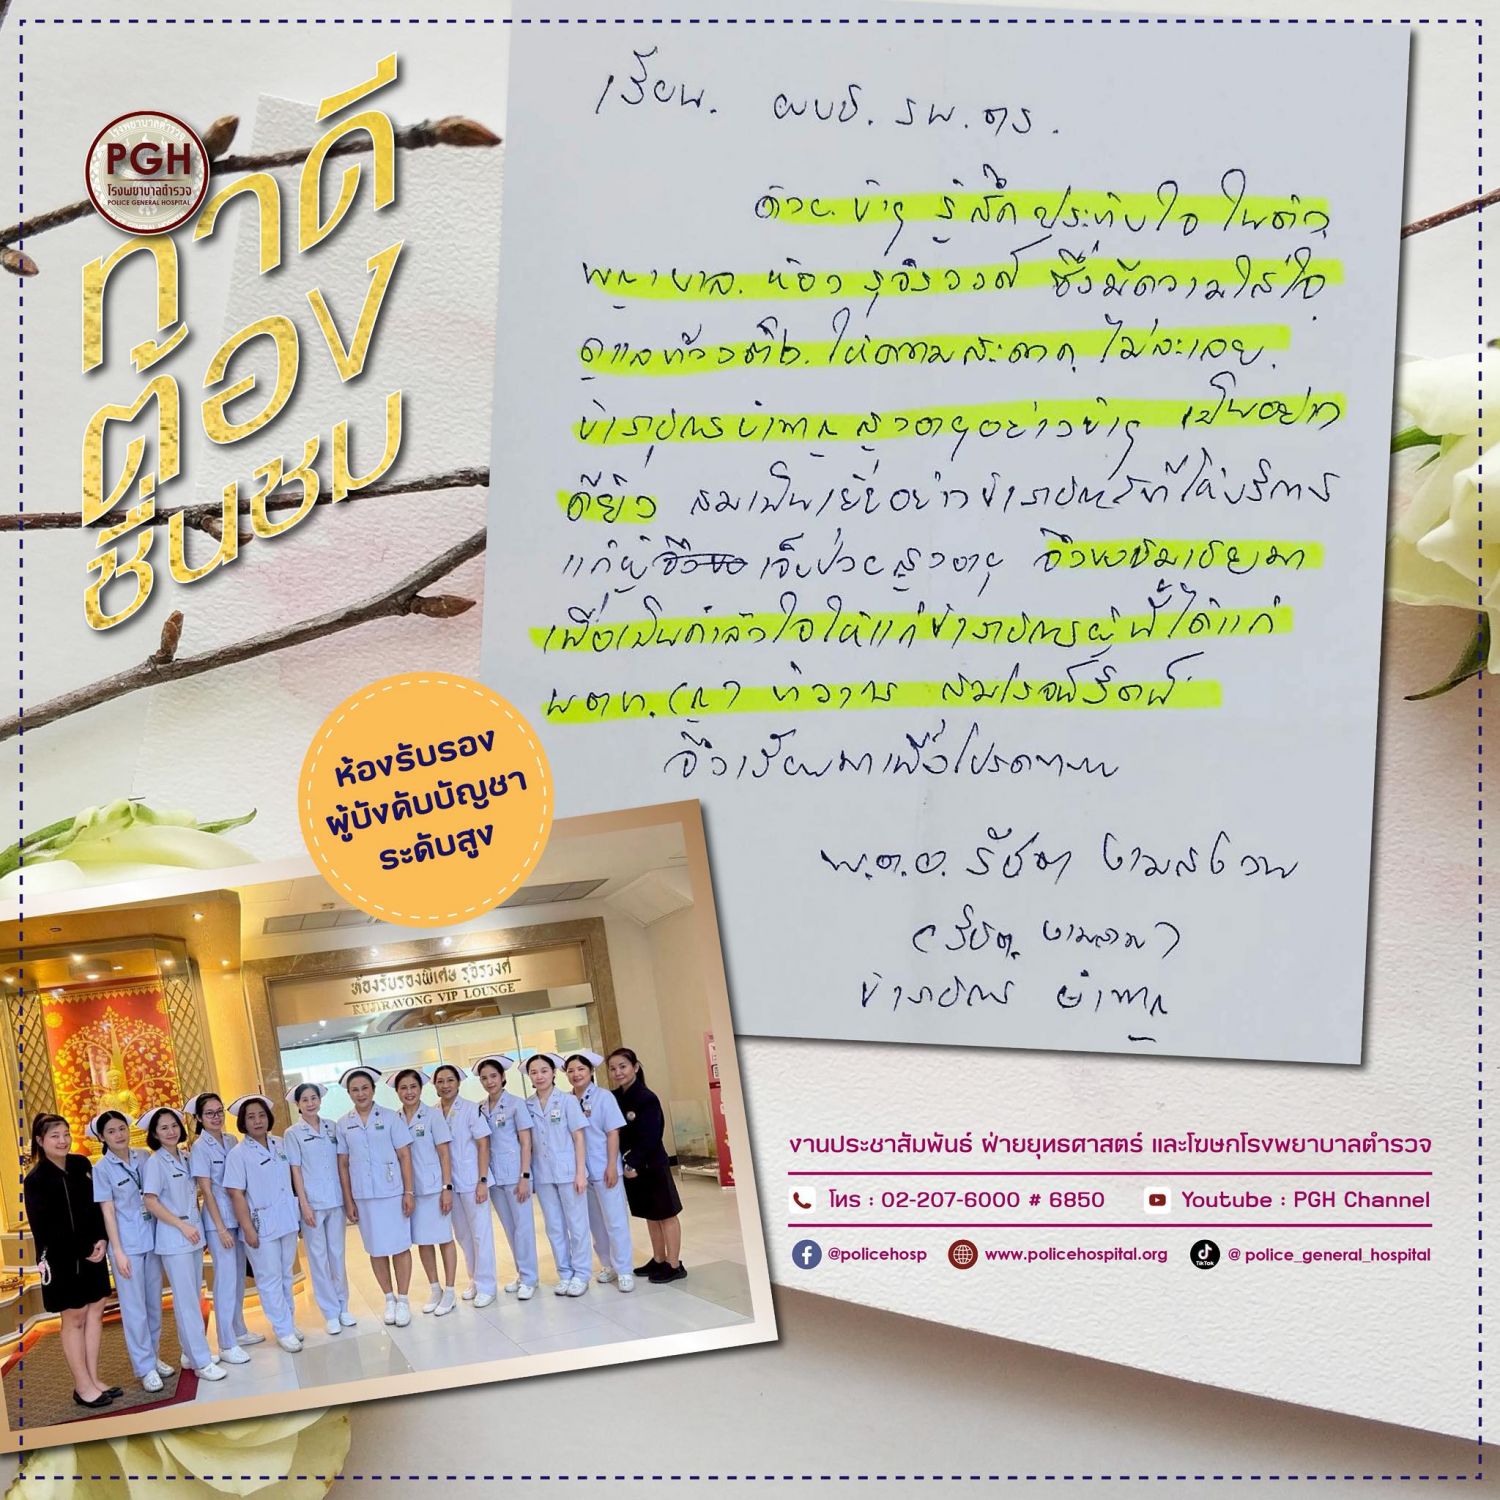 โรงพยาบาลตำรวจ
PGH
โรงพยาบาลตำรวจ
POLICE GENERAL HOSPITAL
ทำดี
ต้อง
ชื่นชม
เรียน. ผบช. รพ.ตร.
ด้วย ข้าฯ รู้สึกประทับใจ ในตัว
พยาบาล. ห้อง รุจิรวงศ์ ซึ่งมีความใส่ใจ
ให้ความสะดวก ไม่ละเลย.
ข้าราชการบำนาญ สูงอายุอย่างข้าฯ เป็นอย่าง
ดียิ่ง ข้าราชการที่ให้บริการ
แก่ผู้ เจ็บป่วยสูงอายุ จึงขอชมเชยมา
เพื่อเป็นกำลังใจให้แก่ข้าราชการผู้นี้ได้แก่
พตท.
จึงเรียนมาเพื่อโปรดทราบ
พ.ต.อ.
ข้าราชการ บำนาญ
ห้องรับรอง
ผู้บังคับบัญชา
ระดับสูง
ห้องรับรองพิเศษ รุจิรวงศ์
RUJIRAVONG VIP LOUNGE
งานประชาสัมพันธ์ ฝ่ายยุทธศาสตร์ และโฆษกโรงพยาบาลตำรวจ
โทร : 02-207-6000 # 6850 Youtube : PGH Channel
@policehosp www.policehospital.org TikTok @police_general_hospital